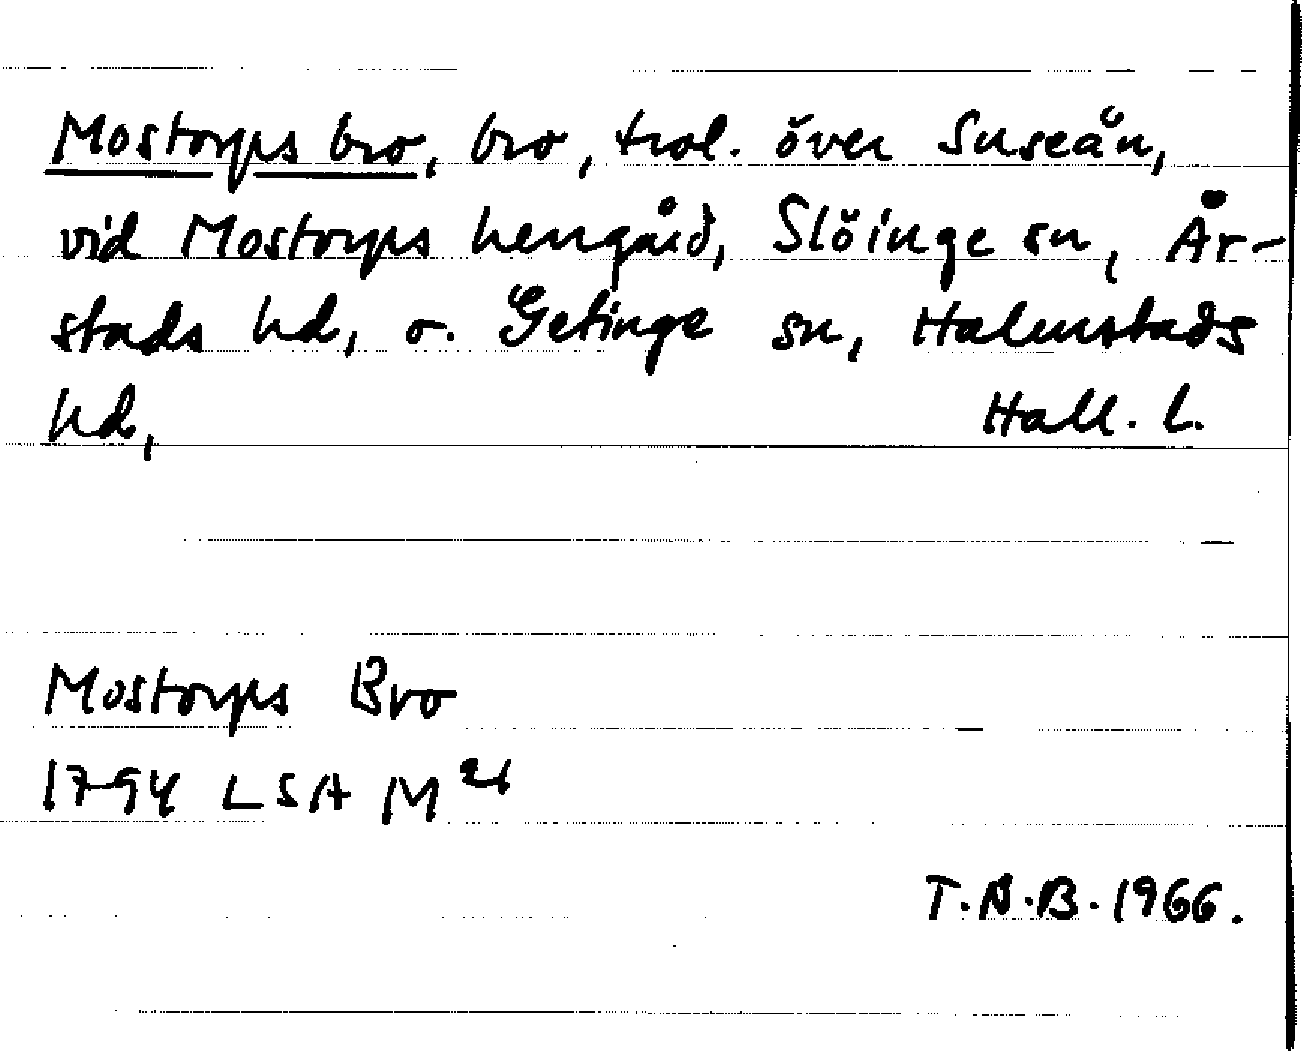 Mostorps bro, bro, trol. över Suseån,
vid Mostorps herrgård, Slöinge sn, År-
stads hd, o. Getinge sn, Halmstads
hd, Hall. l.
Mostorps Bro
1794 LSA M 21
T.N.B. 1966.